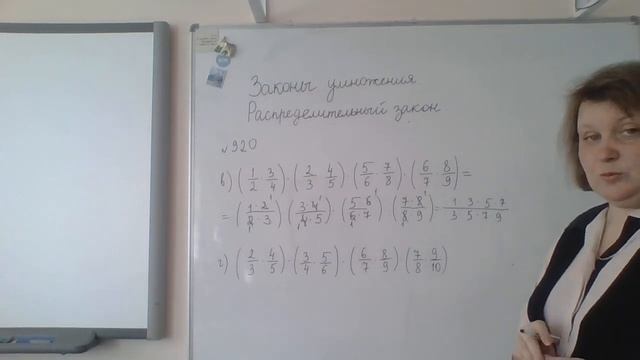 Законы умножения.
Распределительный закон
№920
в) (1/2 · 3/4) · (2/3 · 4/5) (5/6 · 7/8) · (6/7 · 8/9) =
= (1·2/2·3) (3·4/4·5) · (5·6/6·7) (7·8/8·9) = 1·3·5·7/3·5·7·9
г) (2/3 · 4/5) · (3/4 · 5/6) · (6/7 · 8/9) (7/8 · 9/10)